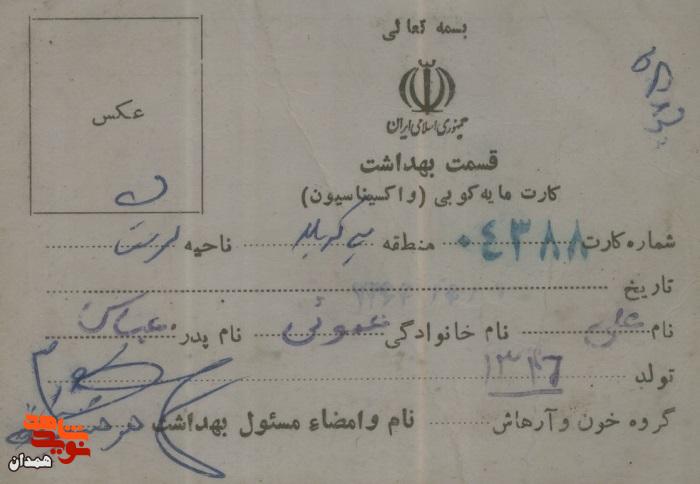 بسمه تعالی
جمهوری اسلامی ایران
عکس
قسمت بهداشت
کارت مایه کوبی (واکسیناسیون)
شماره کارت ۰۴۳۸۸ منطقه ناحیه
تاریخ
نام علی نام خانوادگی عموئی نام پدر عباس
تولد ۱۳۴۶
گروه خون و آرهاش نام و امضاء مسئول بهداشت
نوید شاهد
همدان